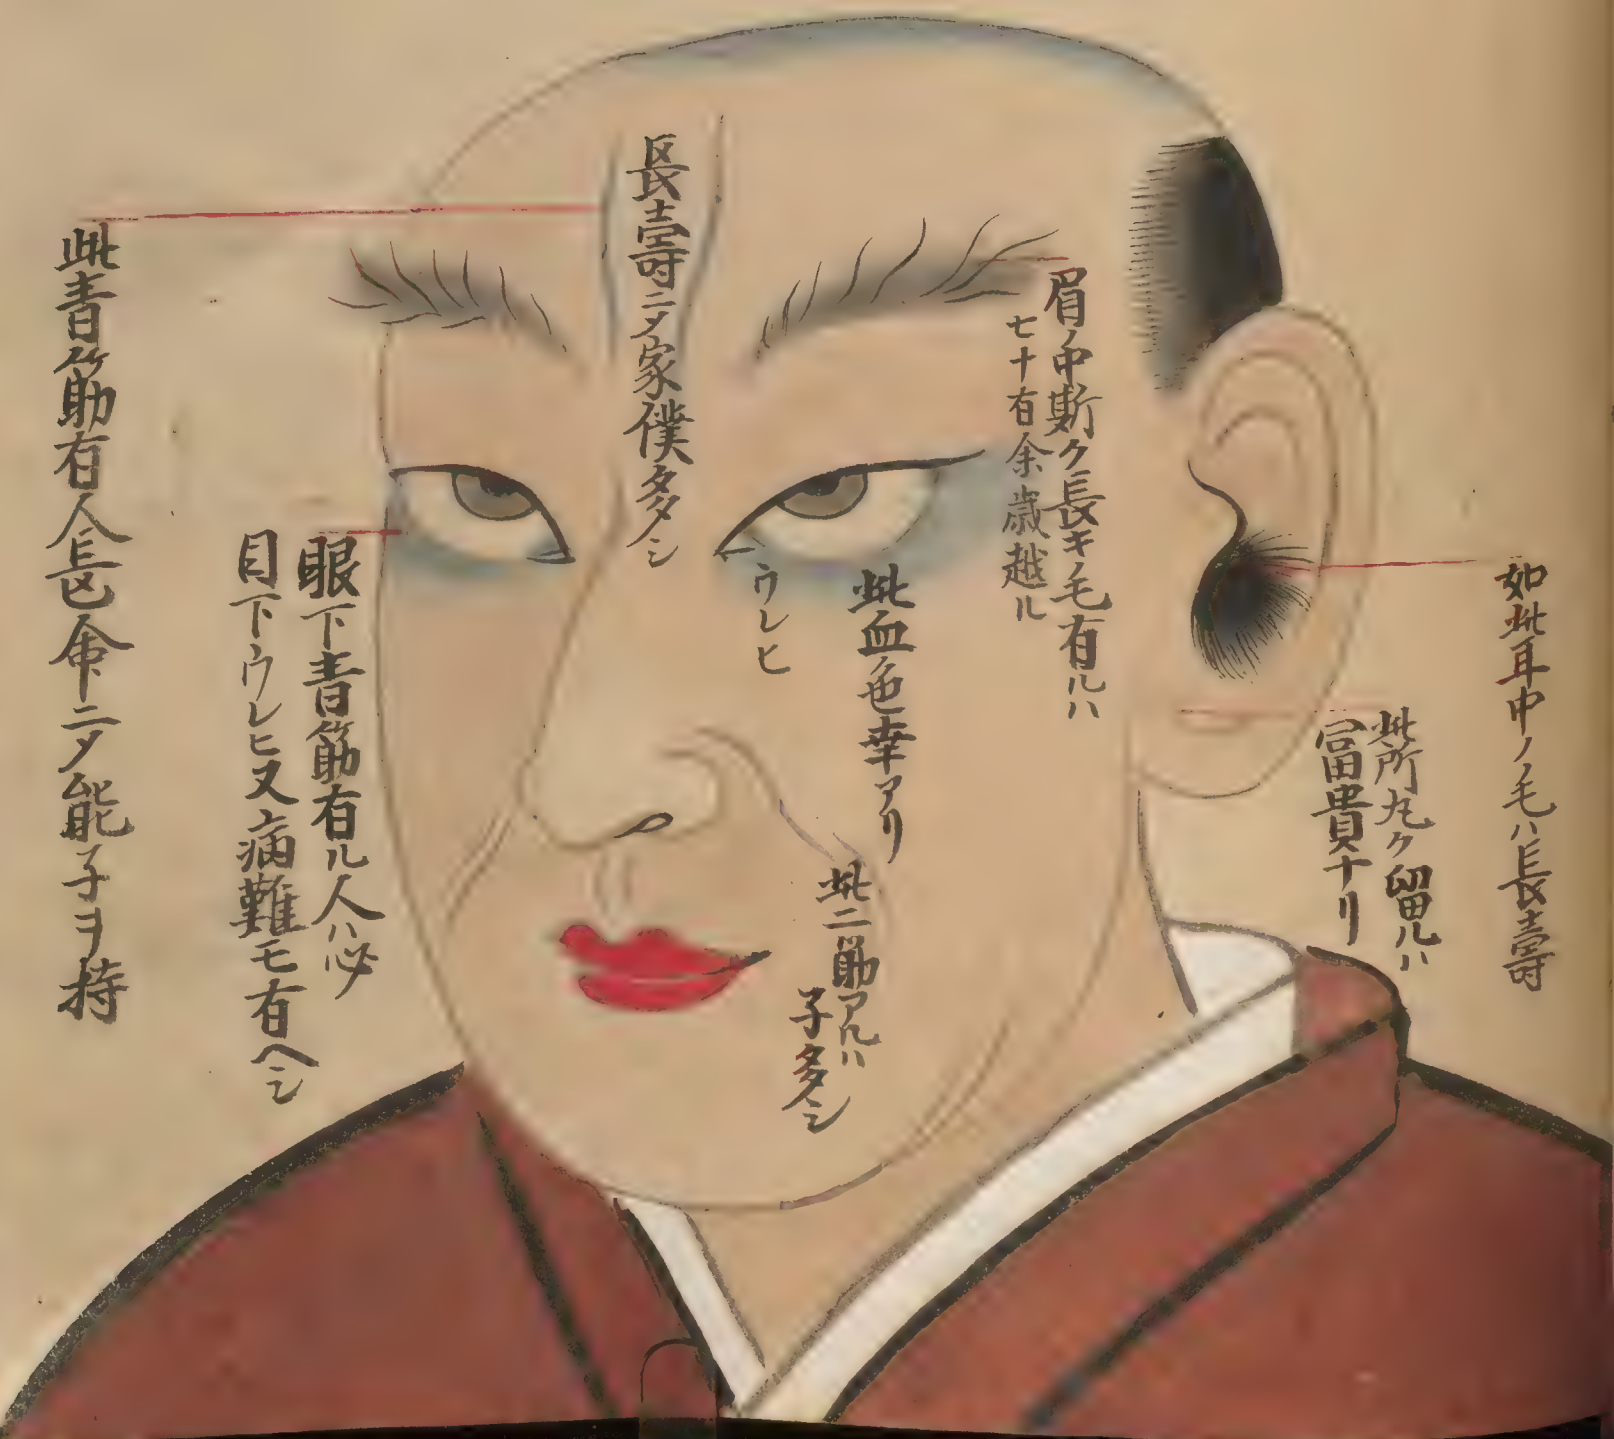 如此耳中ノ毛ハ長壽
此所丸ク留ルハ
冨貴ナリ
眉ノ中斯ク長キ毛有ルハ
七十有余歳越ル
此血色幸アリ
此二筋アルハ
子多シ
ウレヒ
長壽ニ〆家僕多シ
眼下青筋有ル人ハ必
目下ウレヒ又病難モ有ヘシ
此青筋有人長命ニ〆能子ヲ持